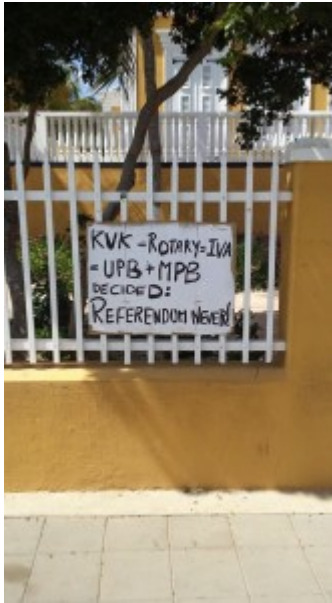 KVK - ROTARY = IVA
= UPB + MPB
DECIDED:
REFERENDUM NEVER!